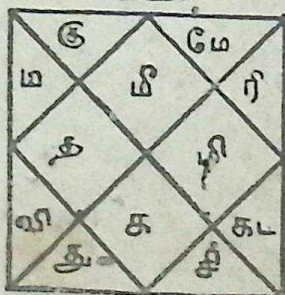 கு மே
ம மீ ரி
த மி
வி க கட
து சி